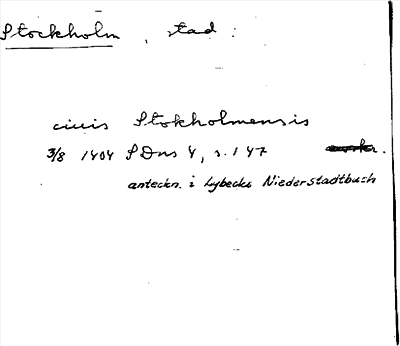 Stockholm, stad:
civis Stokholmensis
3/8 1404 SDns 4, s. 147
anteckn. i Lybecks Niederstadtbuch